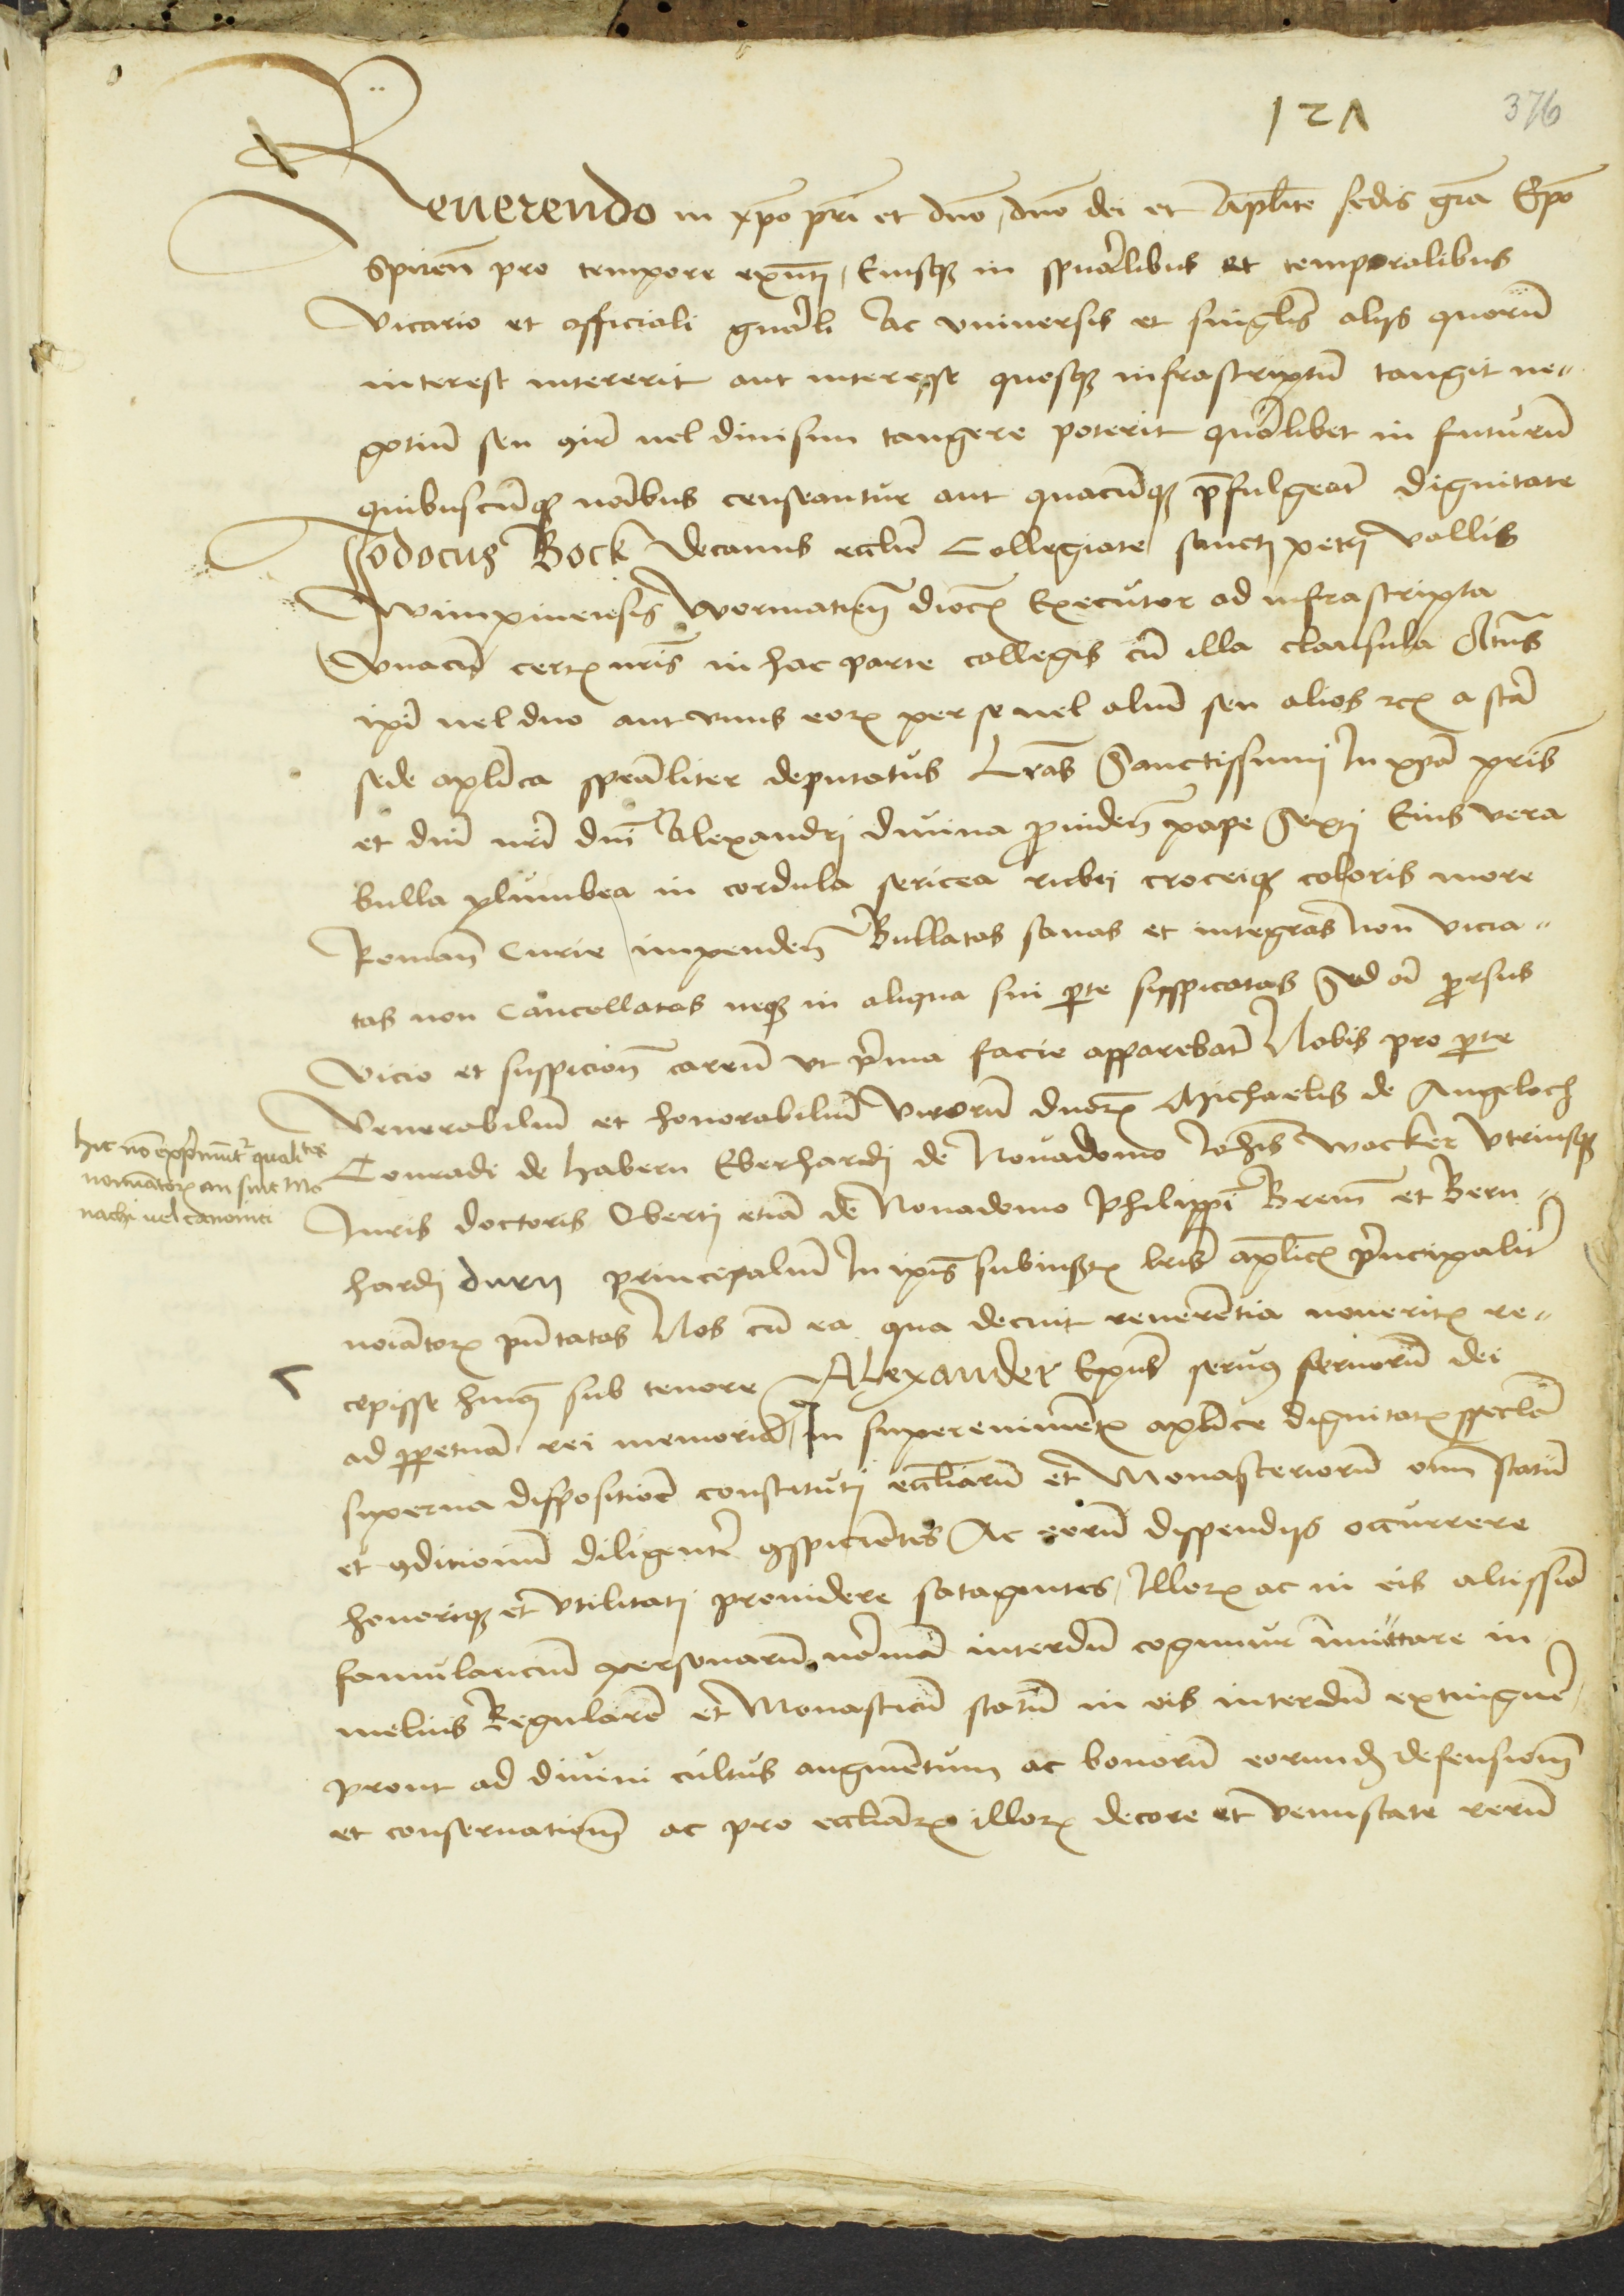 127 376
Reuerendo in xp̄o pr̄i et dn̄o, dn̄o dei et Ap̄lice sedis gr̄a Ep̄o
Spiren̄ pro tempore exn̄ti, Eiusq; in spūalibus et temporalibus
Vicario et officiali gn̄ali Ac vniuersis et singlis̄ alijs quorū
interest intererit aut interesse quosq; infrascriptū tangit ne„
gotiū seu ꝯir̄ uel diuisim tangere poterit quōlibet in futurū
quibuscūq; noı̄bus censeantur aut quacūq; p̄fulgeāt dignitate
Jodocus Bock decanus eccli̅e Collegiate sancti petrj Vallis
wimpinen̄sis wormatien̄ dioc̄ꝫ Executor ad infrascripta
Vnacū certꝫ nr̄is in hac parte collegis cū illa clausula Qtn̄s
ip̄i uel duo aut vnus eorꝫ per se uel aliū seu alios ꝛcꝫ a sc̄a
sede ap̄lica spēaliter deputatus Lr̄as Sanctissimj In xp̄o pr̄is
et dn̄i nr̄i dn̄i Alexandrj diuina ꝓuiden̄ pape Sextj Eius vera
bulla plumbea in cordula sericea rubej croceiq; coloris more
Roman̄ Curie impenden̄ Bullatas sanas et integras non vicia„
tas non Cancellatas neq; in aliqua sui ꝑte suspicatas Sed oı̄ ꝓrsus
vicio et suspicion̄ caren̄ vt p̄rima facie apparebāt Nobis pro ꝑte
Venerabiliū et honorabiliū virorū dn̄orꝫ Michaelis de Angeloch
Conradi de habern Eberhardj de Nouadomo Joh̄is wacker vtriusq;
Juris doctoris Oberti etiā de Nouadomo Philippi Brem̄ et Bern„
hardj durn principaliū In ip̄is subinsertꝫ lr̄is ap̄licꝫ p̄rincipaliter̄
noı̄atorꝫ pn̄tatas Nos cū ea qua decuit reuerentia noueritꝫ re„
cepisse hm̄oj sub tenore Alexander Ep̄us seruꝯ seruorū dei
ad ꝑpetuā rei memoriā, In supereminentꝫ ap̄lice dignitatꝫ specl̄a
superna dispositione constituti eccl̄iarū et Monasteriorū om̄ statū
et ꝯditionem diligenter̄ ꝯspicientes Ac eorū dispendijs occurrere
honoriq; et vtilitatj prouidere satagentes, Illorꝫ ac in eis altissimo
famulanciū personarū, normā interdū cogimur im̄uttare in
melius Regularē et Monasticū statū in eis interdū extinguere
prout ad diuini cultus augmentum ac bonorū eorund̄ defensionem
et conseruationem ac pro eccl̄iarꝫ illorꝫ decore et venustate rerū
hic nō exp̄rimūt̄ qualitas
noı̄natorꝫ an sint mo
nachi uel canonici